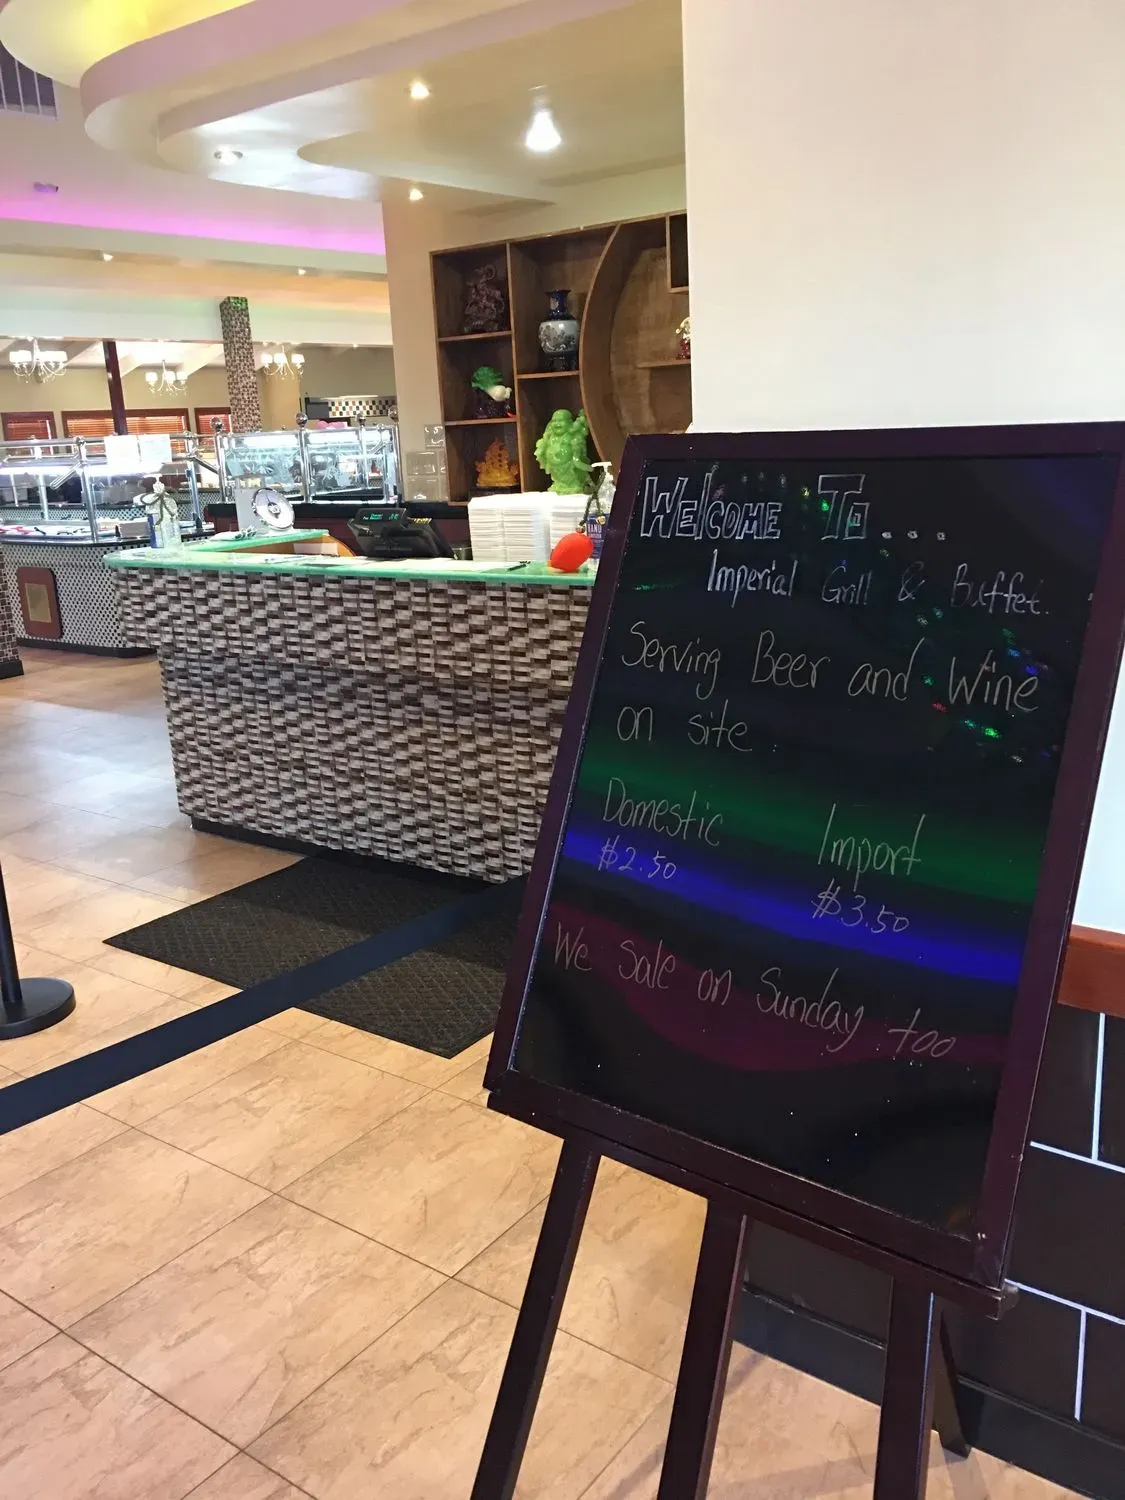 Welcome To...
Imperial Grill & Buffet.
Serving Beer and Wine
on site.
Domestic Import
$2.50 $3.50
We Sale on Sunday too